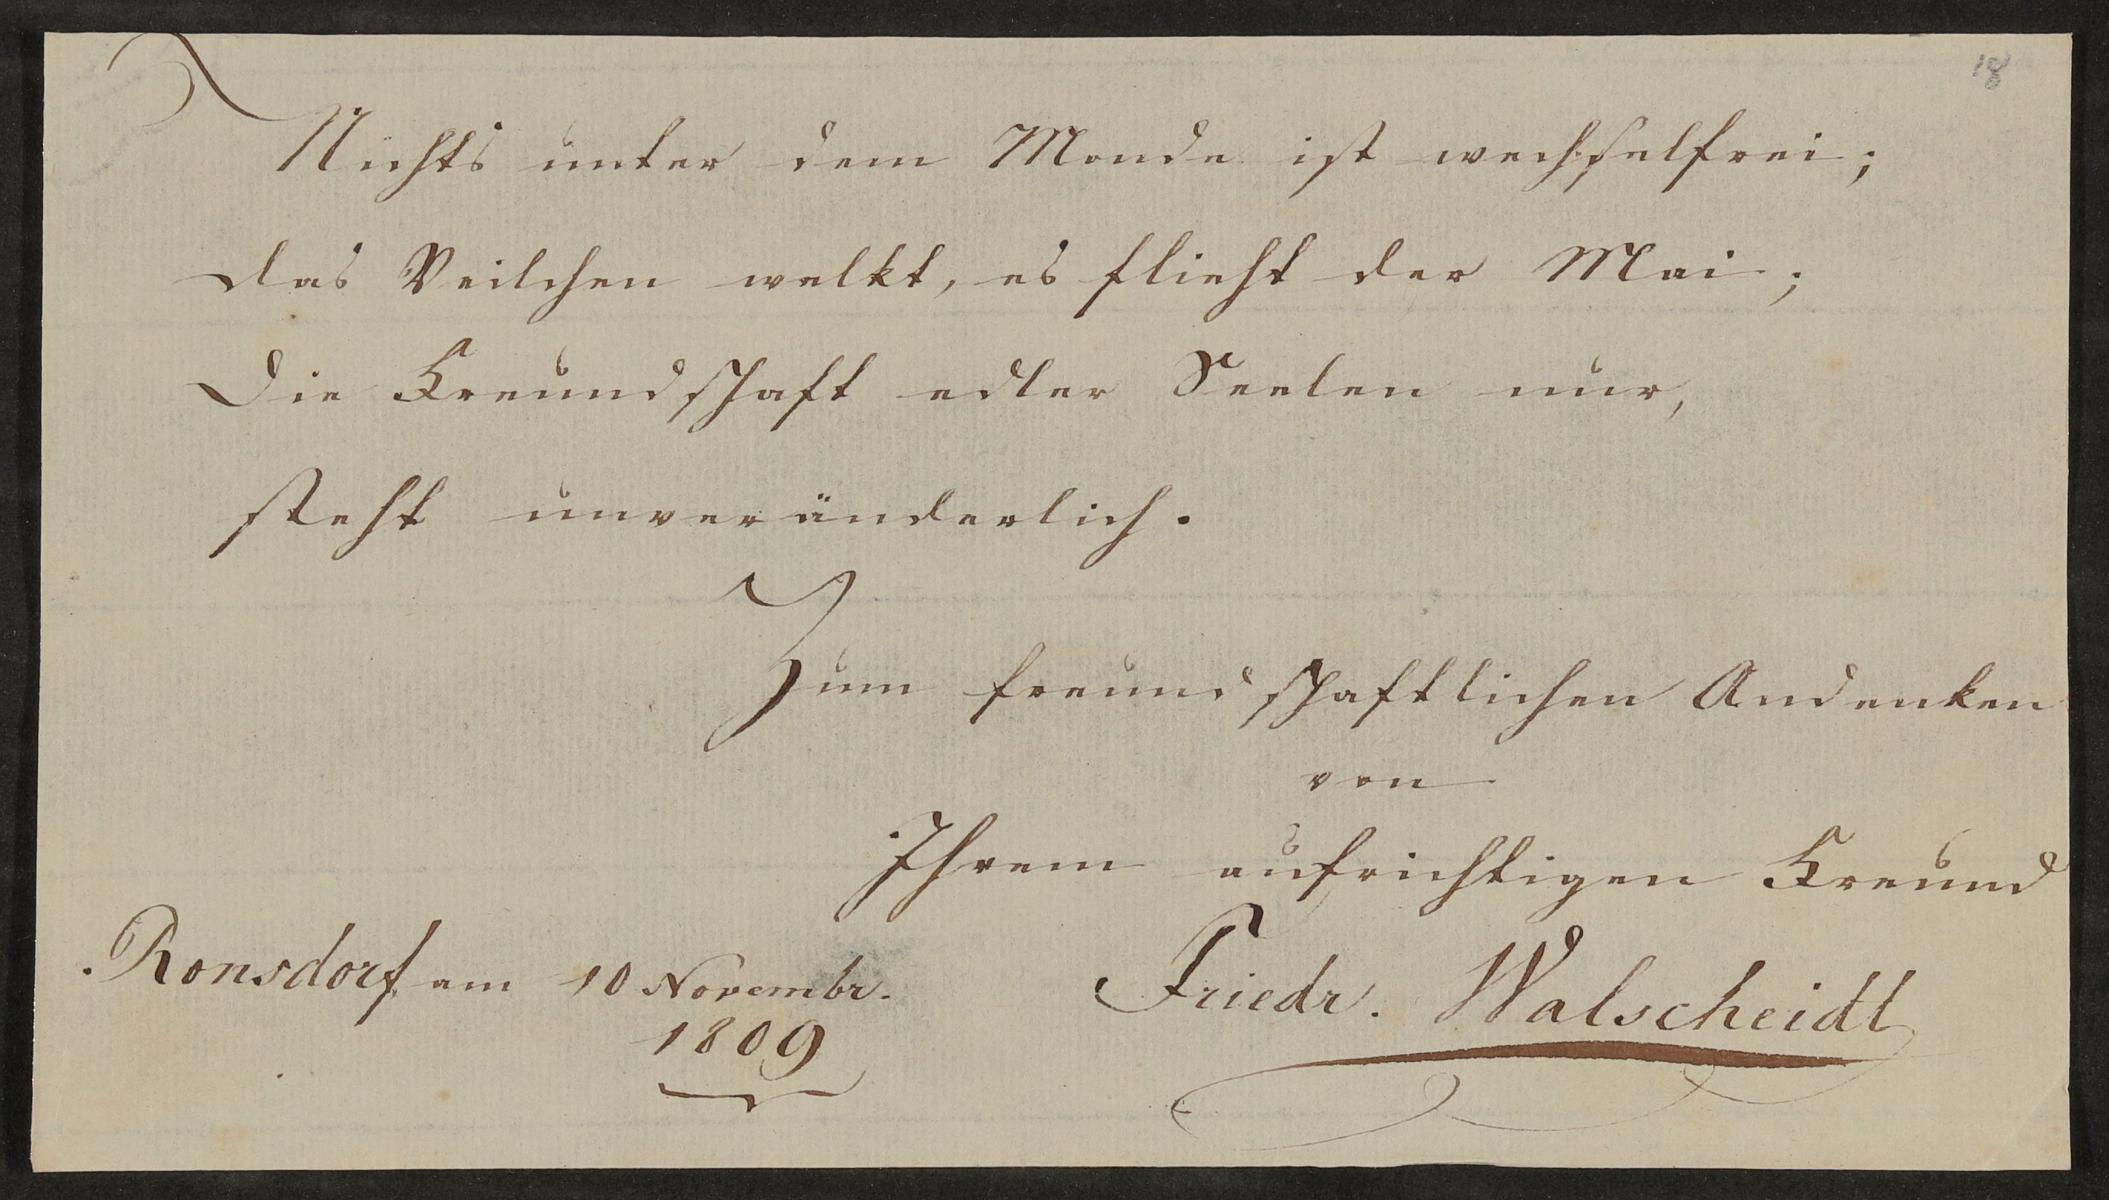 18
Nichts unter dem Monde ist wechselfrei;
das Veilchen welkt, es flieht der Mai;
Die Freundschaft edler Seelen nur,
steht unveränderlich.
Zum freundschaftlichen Andenken
von
Ihrem aufrichtigen Freund
Ronsdorf am 10 Novembr. Friedr. Walscheidt
1809